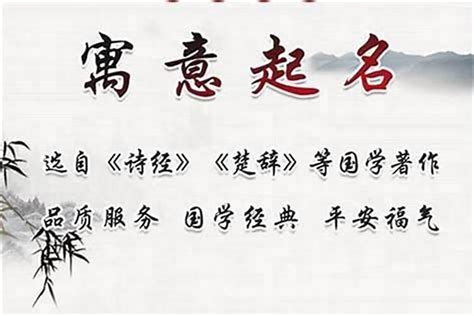 寓意起名
选自《诗经》《楚辞》等国学著作
品质服务 国学经典 平安福气